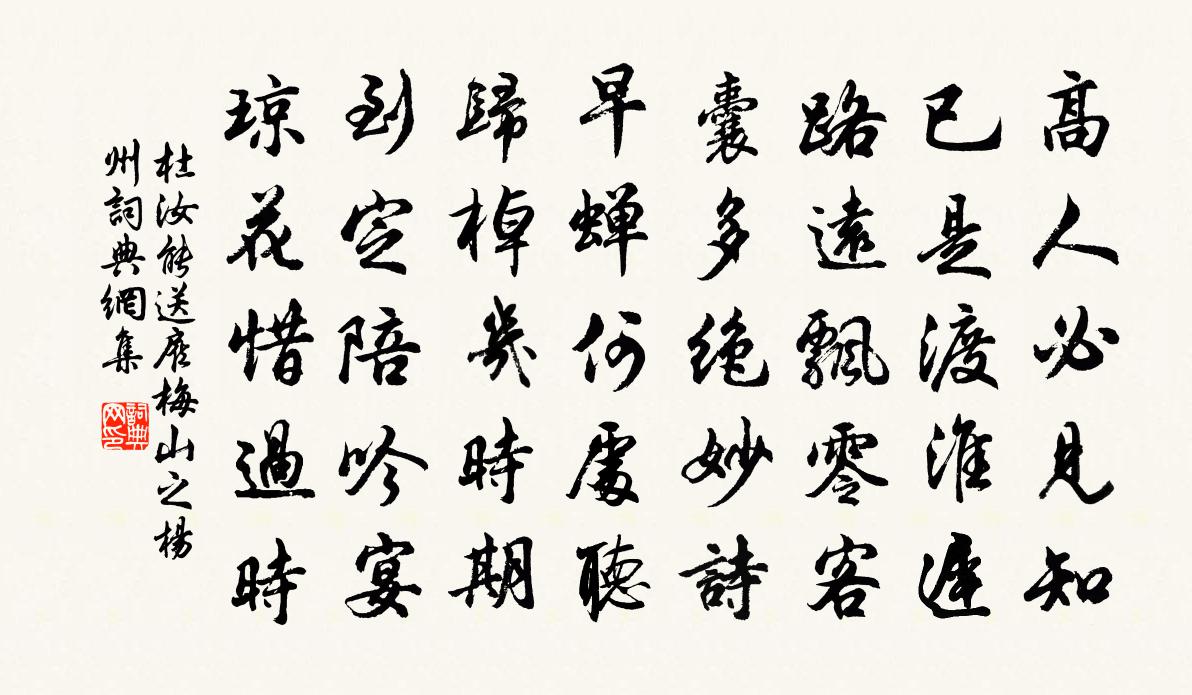 高人必見知
已是渡淮遲
路遠飄零客
囊多絶妙詩
早蟬何處聽
歸棹幾時期
到定陪吟宴
琼花惜過時
杜汝能送鹿梅山之楊
州詞典網集
詞典
网印